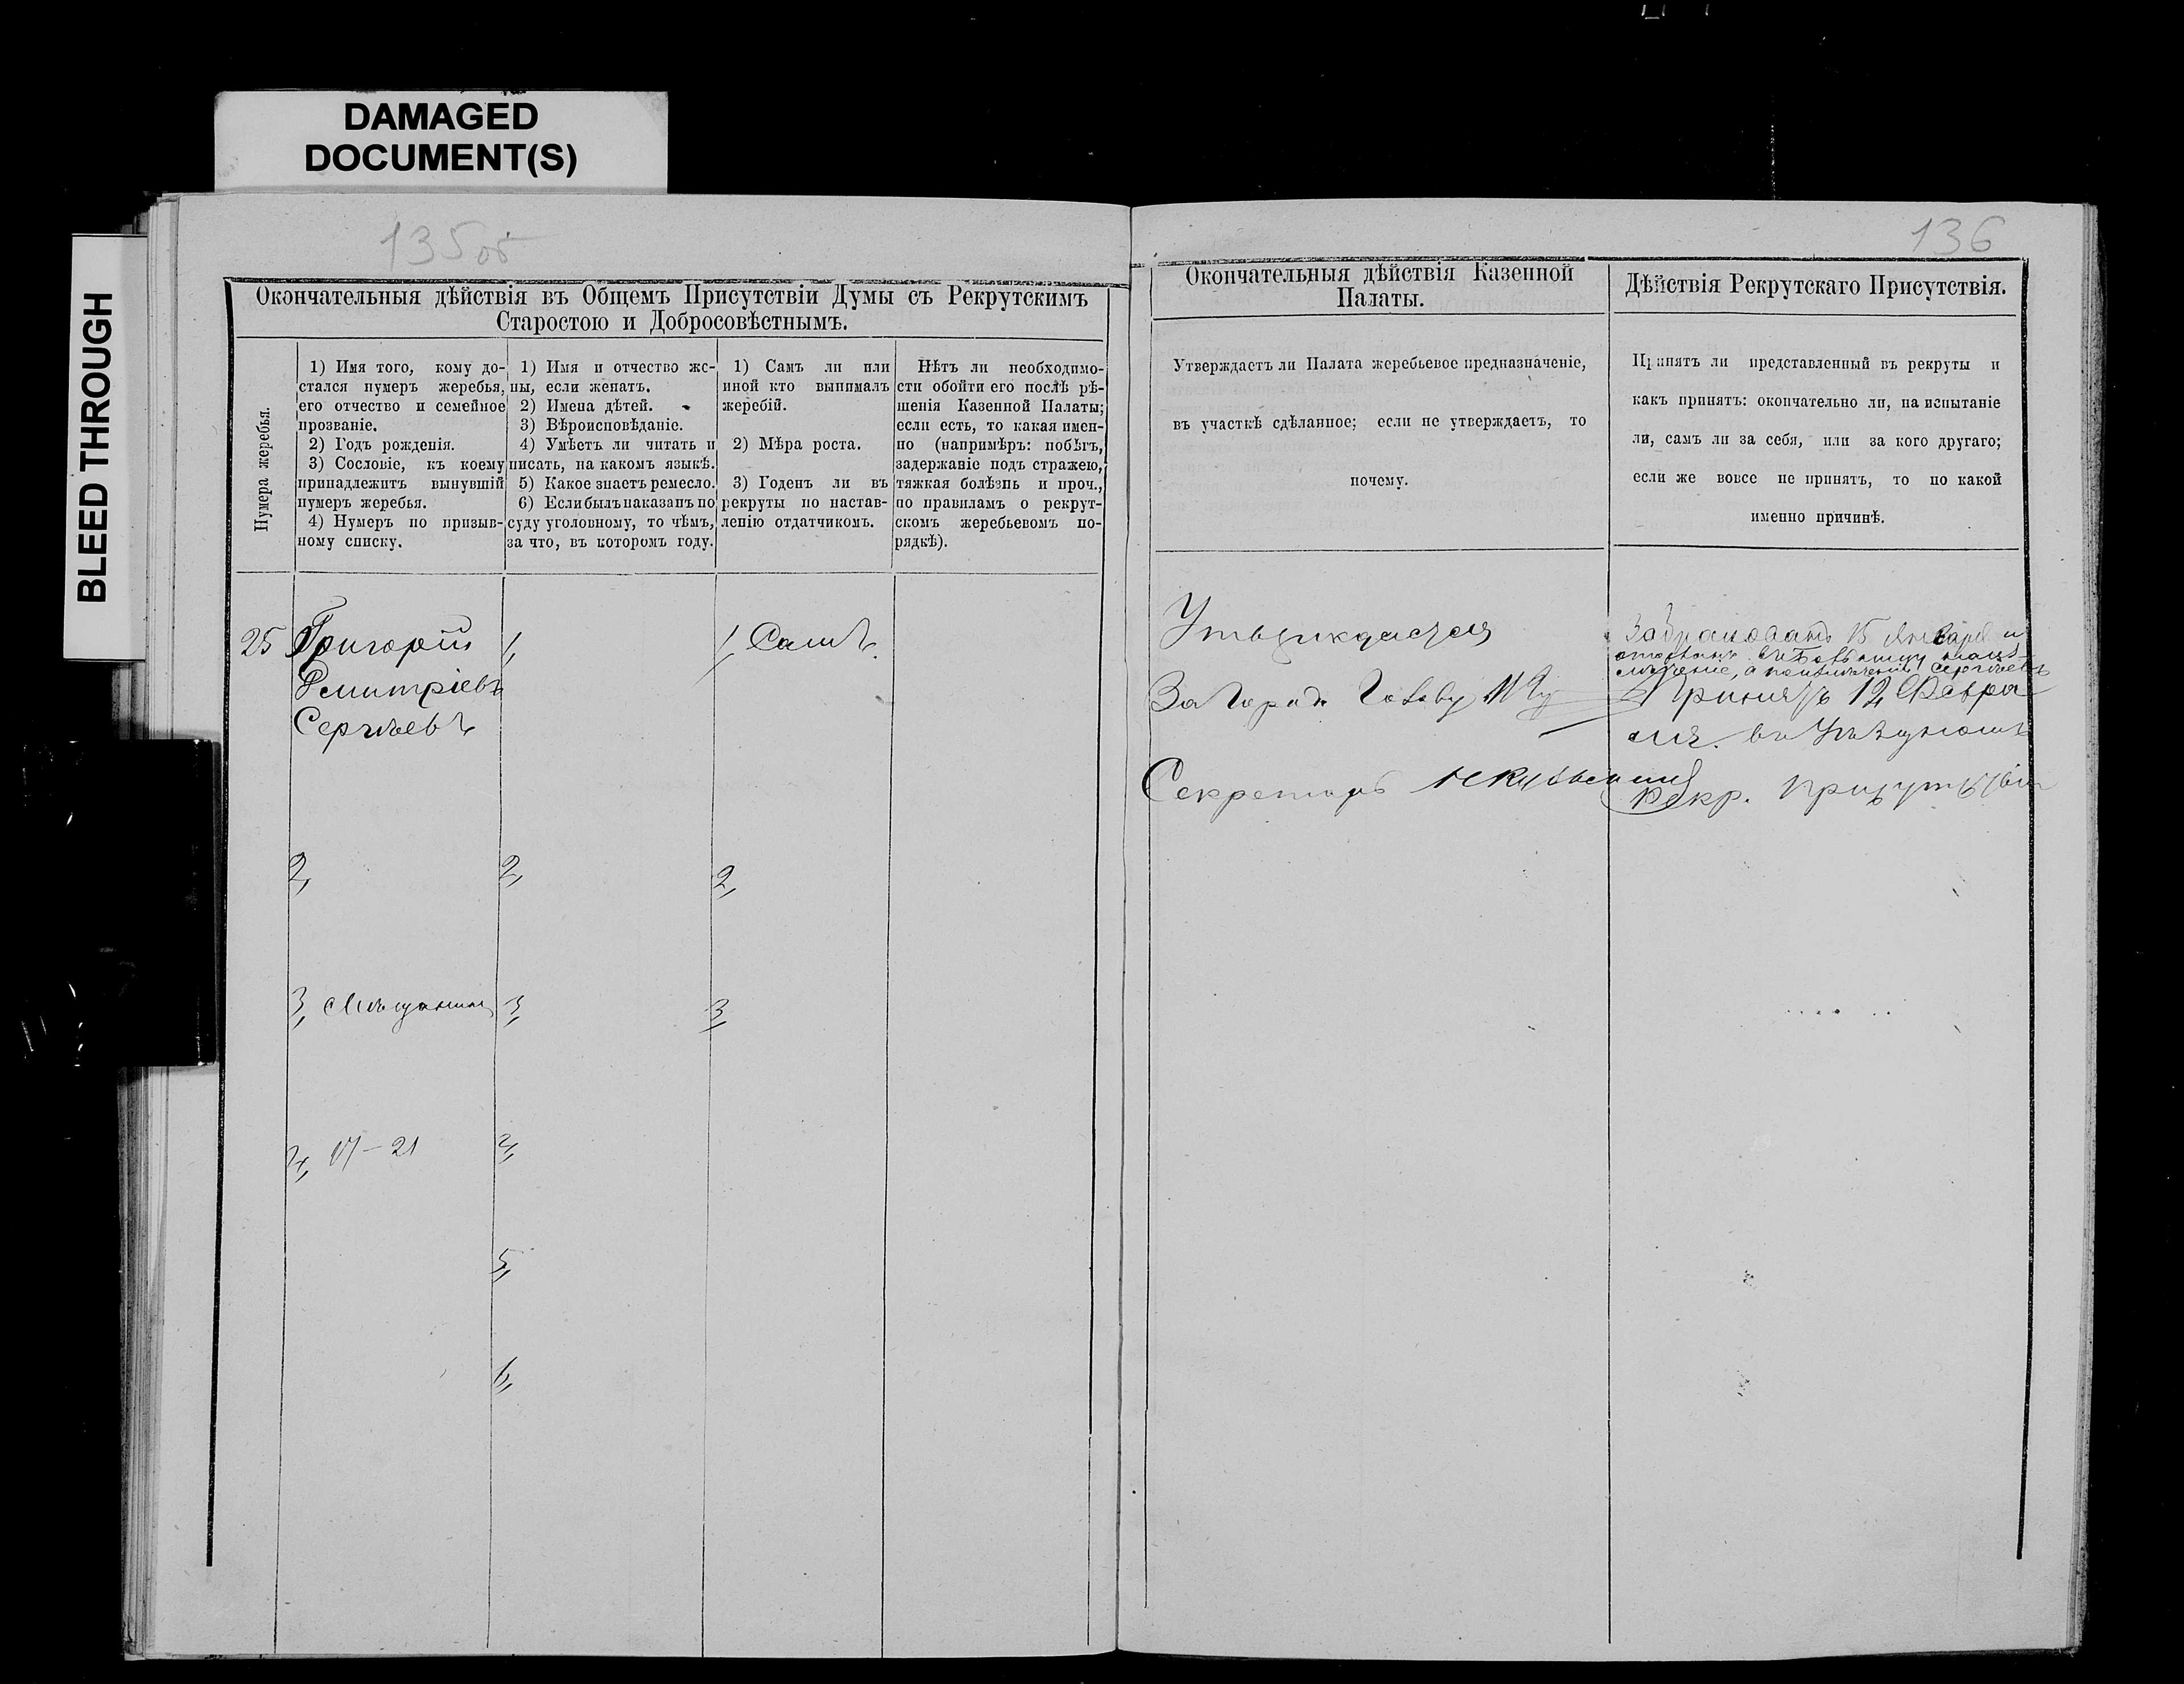 DAMAGED
DOCUMENT(S)
BLEED THROUGH
135 об
136
Окончательныя дѣйствія въ Общемъ Присутствіи Думы съ Рекрутскимъ
Старостою и Добросовѣстнымъ.
Нумера жеребья.
1) Имя того, кому до-
стался нумеръ жеребья,
его отчество и семейное
прозваніе.
2) Годъ рожденія.
3) Сословіе, къ коему
принадлежитъ вынувшій
нумеръ жеребья.
4) Нумеръ по призыв-
ному списку.
1) Имя и отчество же-
ны, если женатъ.
2) Имена дѣтей.
3) Вѣроисповѣданіе.
4) Умѣетъ ли читать и
писать, на какомъ языкѣ.
5) Какое знаетъ ремесло.
6) Если былъ наказанъ по
суду уголовному, то чѣмъ,
за что, въ которомъ году.
1) Самъ ли или
иной кто вынималъ
жеребій.
2) Мѣра роста.
3) Годенъ ли въ
рекруты по настав-
ленію отдатчикомъ.
Нѣтъ ли необходимо-
сти обойти его послѣ рѣ-
шенія Казенной Палаты;
если есть, то какая имен-
но (напримѣръ: побѣгъ,
задержаніе подъ стражею,
тяжкая болѣзнь и проч.,
по правиламъ о рекрут-
скомъ жеребьевомъ по-
рядкѣ).
25 Григорій
Дмитріевъ
Сергѣевъ
2,
3, Мѣщанинъ
4, 17-21
1,
2,
3,
4,
5,
6,
1, Самъ
2,
3,
Окончательныя дѣйствія Казенной
Палаты.
Утверждаетъ ли Палата жеребьевое предназначеніе,
въ участкѣ сдѣланное; если не утверждаетъ, то
почему.
Утверждается
За Город. Голову
Секретарь
Дѣйствія Рекрутскаго Присутствія.
Принятъ ли представленный въ рекруты и
какъ принятъ: окончательно ли, на испытаніе
ли, самъ ли за себя, или за кого другаго;
если же вовсе не принятъ, то по какой
именно причинѣ.
Забракованъ 15 Января и
Сергѣевъ
Принятъ 12 Февра
ля. въ Уѣздномъ
Рекр. Присутствіи